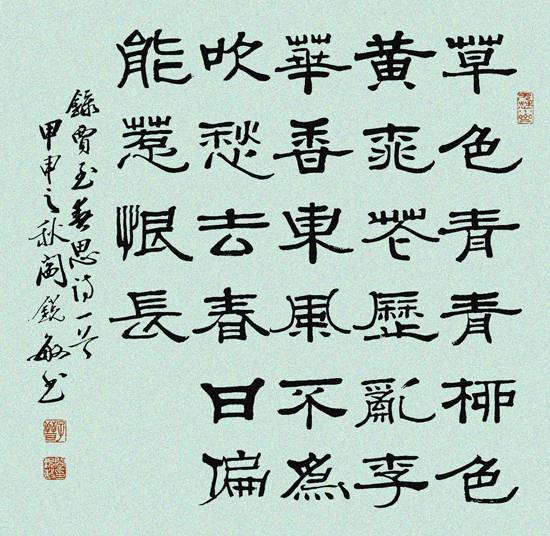 草色青青柳色
黄桃花歷亂李
華香東風不為
吹愁去春日偏
能惹恨長
録賈至春思詩一首
甲申之秋閻鋭敏書